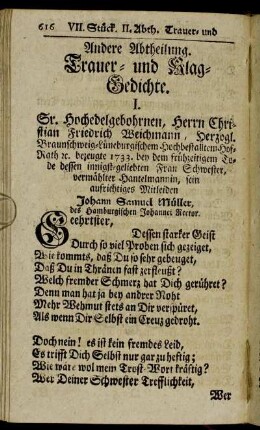 616 VII. Stück. II. Abth. Trauer- und
Andere Abtheilung.
Trauer- und Klag-
Gedichte.
I.
Sr. Hochedelgebohrnen, Herrn Chri-
stian Friedrich Weichmann, Herzogl.
Braunschweig-Lüneburgischem-Hochbestalltem-Hof-
Rath ꝛc. bezeugte 1733. bey dem frühzeitigem To-
de dessen innigst-geliebten Frau Schwester,
vermählter Hantelmannin, sein
aufrichtiges Mitleiden
Johann Samuel Müller,
des Hamburgischen Johannei Rector.
Geehrtster,
Dessen starker Geist
Durch so viel Proben sich gezeiget,
Wie kommts, daß Du so sehr gebeuget,
Daß Du in Thränen fast zerfleußt?
Welch fremder Schmerz hat Dich gerühret?
Denn man hat ja bey andrer Noht
Mehr Wehmut stets an Dir verspüret,
Als wenn Dir Selbst ein Creuz gedroht.
Doch nein! es ist kein fremdes Leid,
Es trifft Dich Selbst nur gar zu heftig;
Wie wäre wol mein Trost-Wort kräftig?
Wer Deiner Schwester Trefflichkeit,
Wer